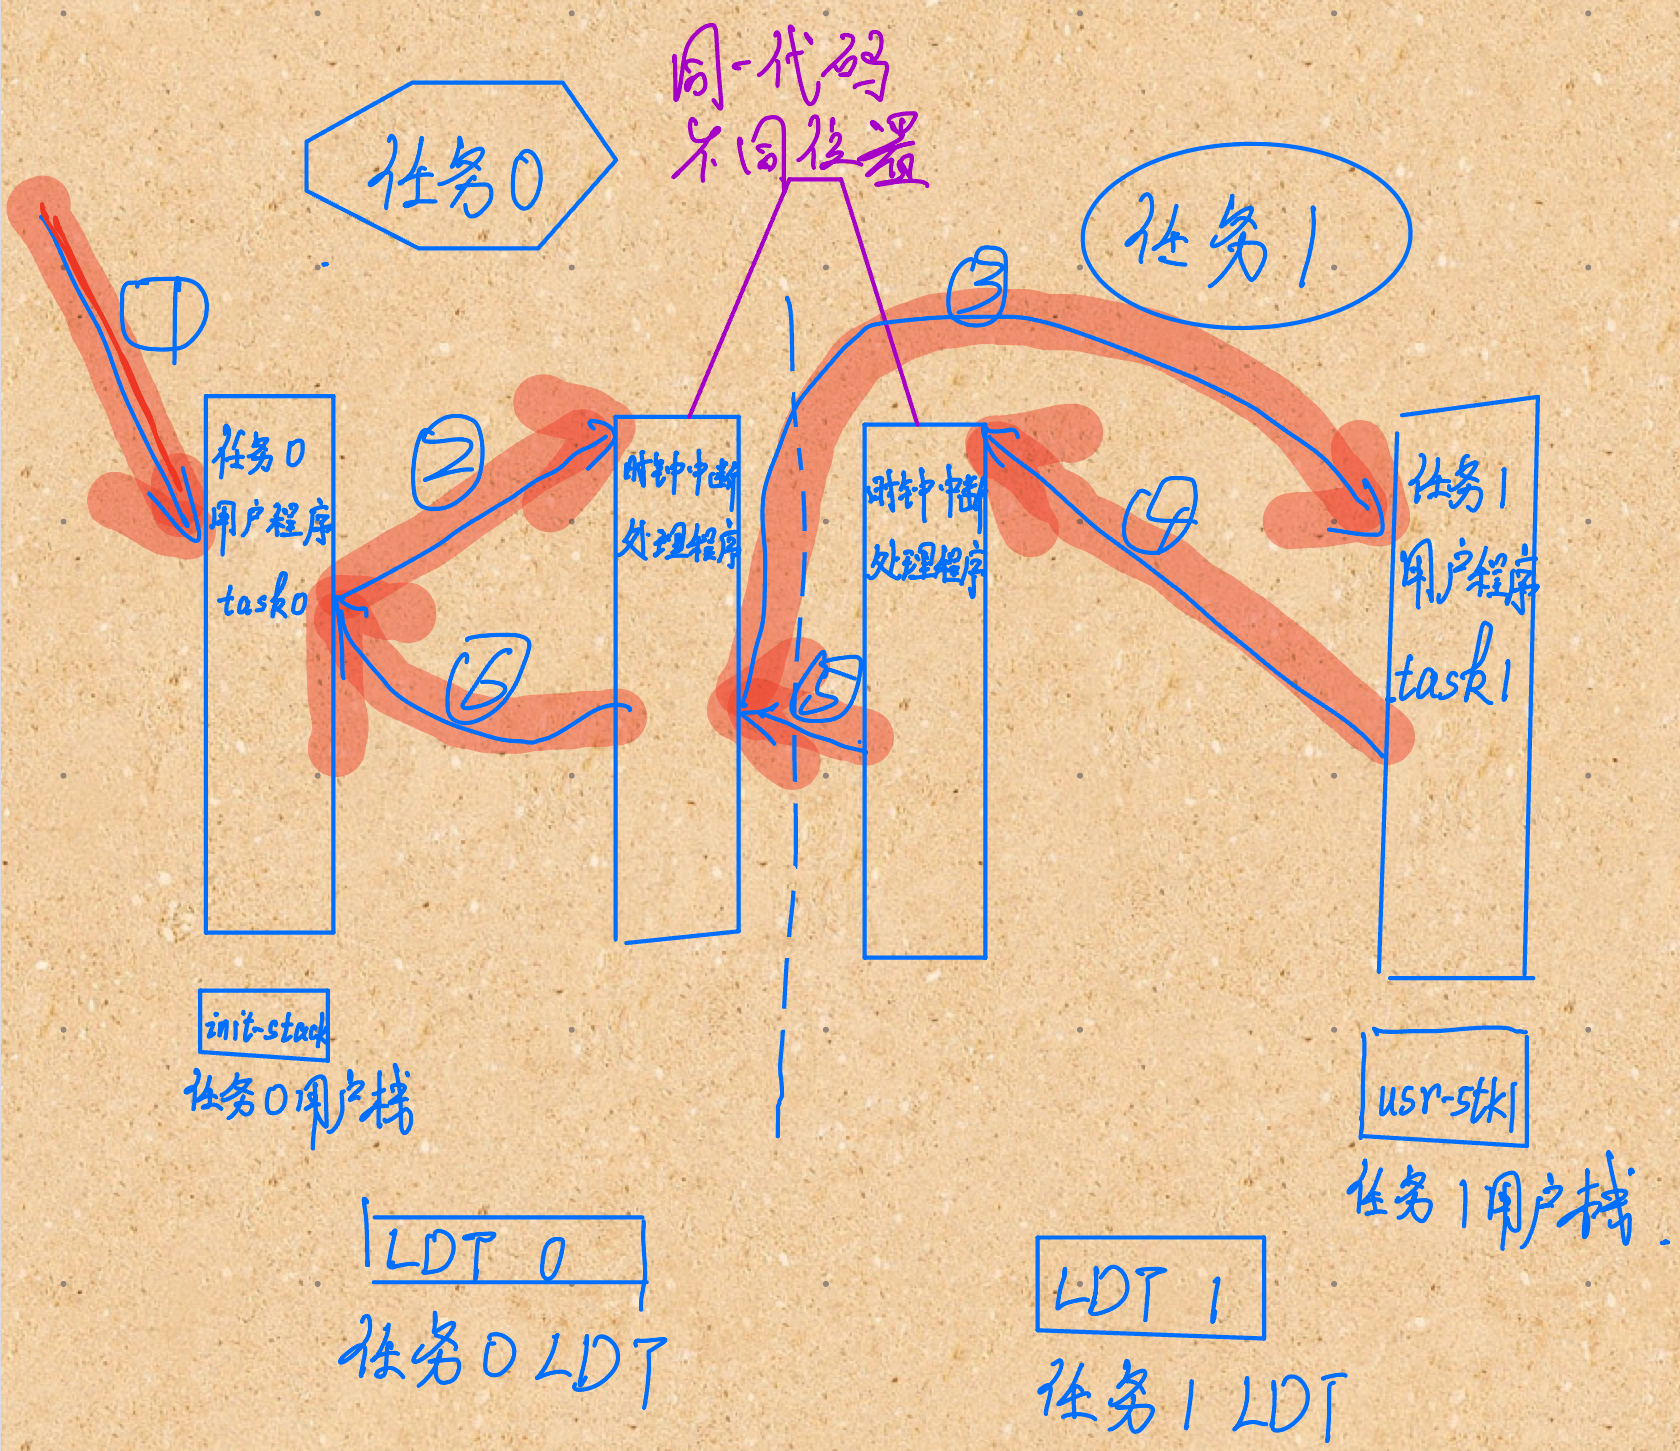 同一代码
不同位置
任务0
任务1
①
③
任务0
用户程序
task0
②
时钟中断
处理程序
时钟中断
处理程序
④
任务1
用户程序
task1
⑥
⑤
init-stack
任务0用户栈
usr-stk1
任务1用户栈
LDT 0
任务0 LDT
LDT 1
任务1 LDT